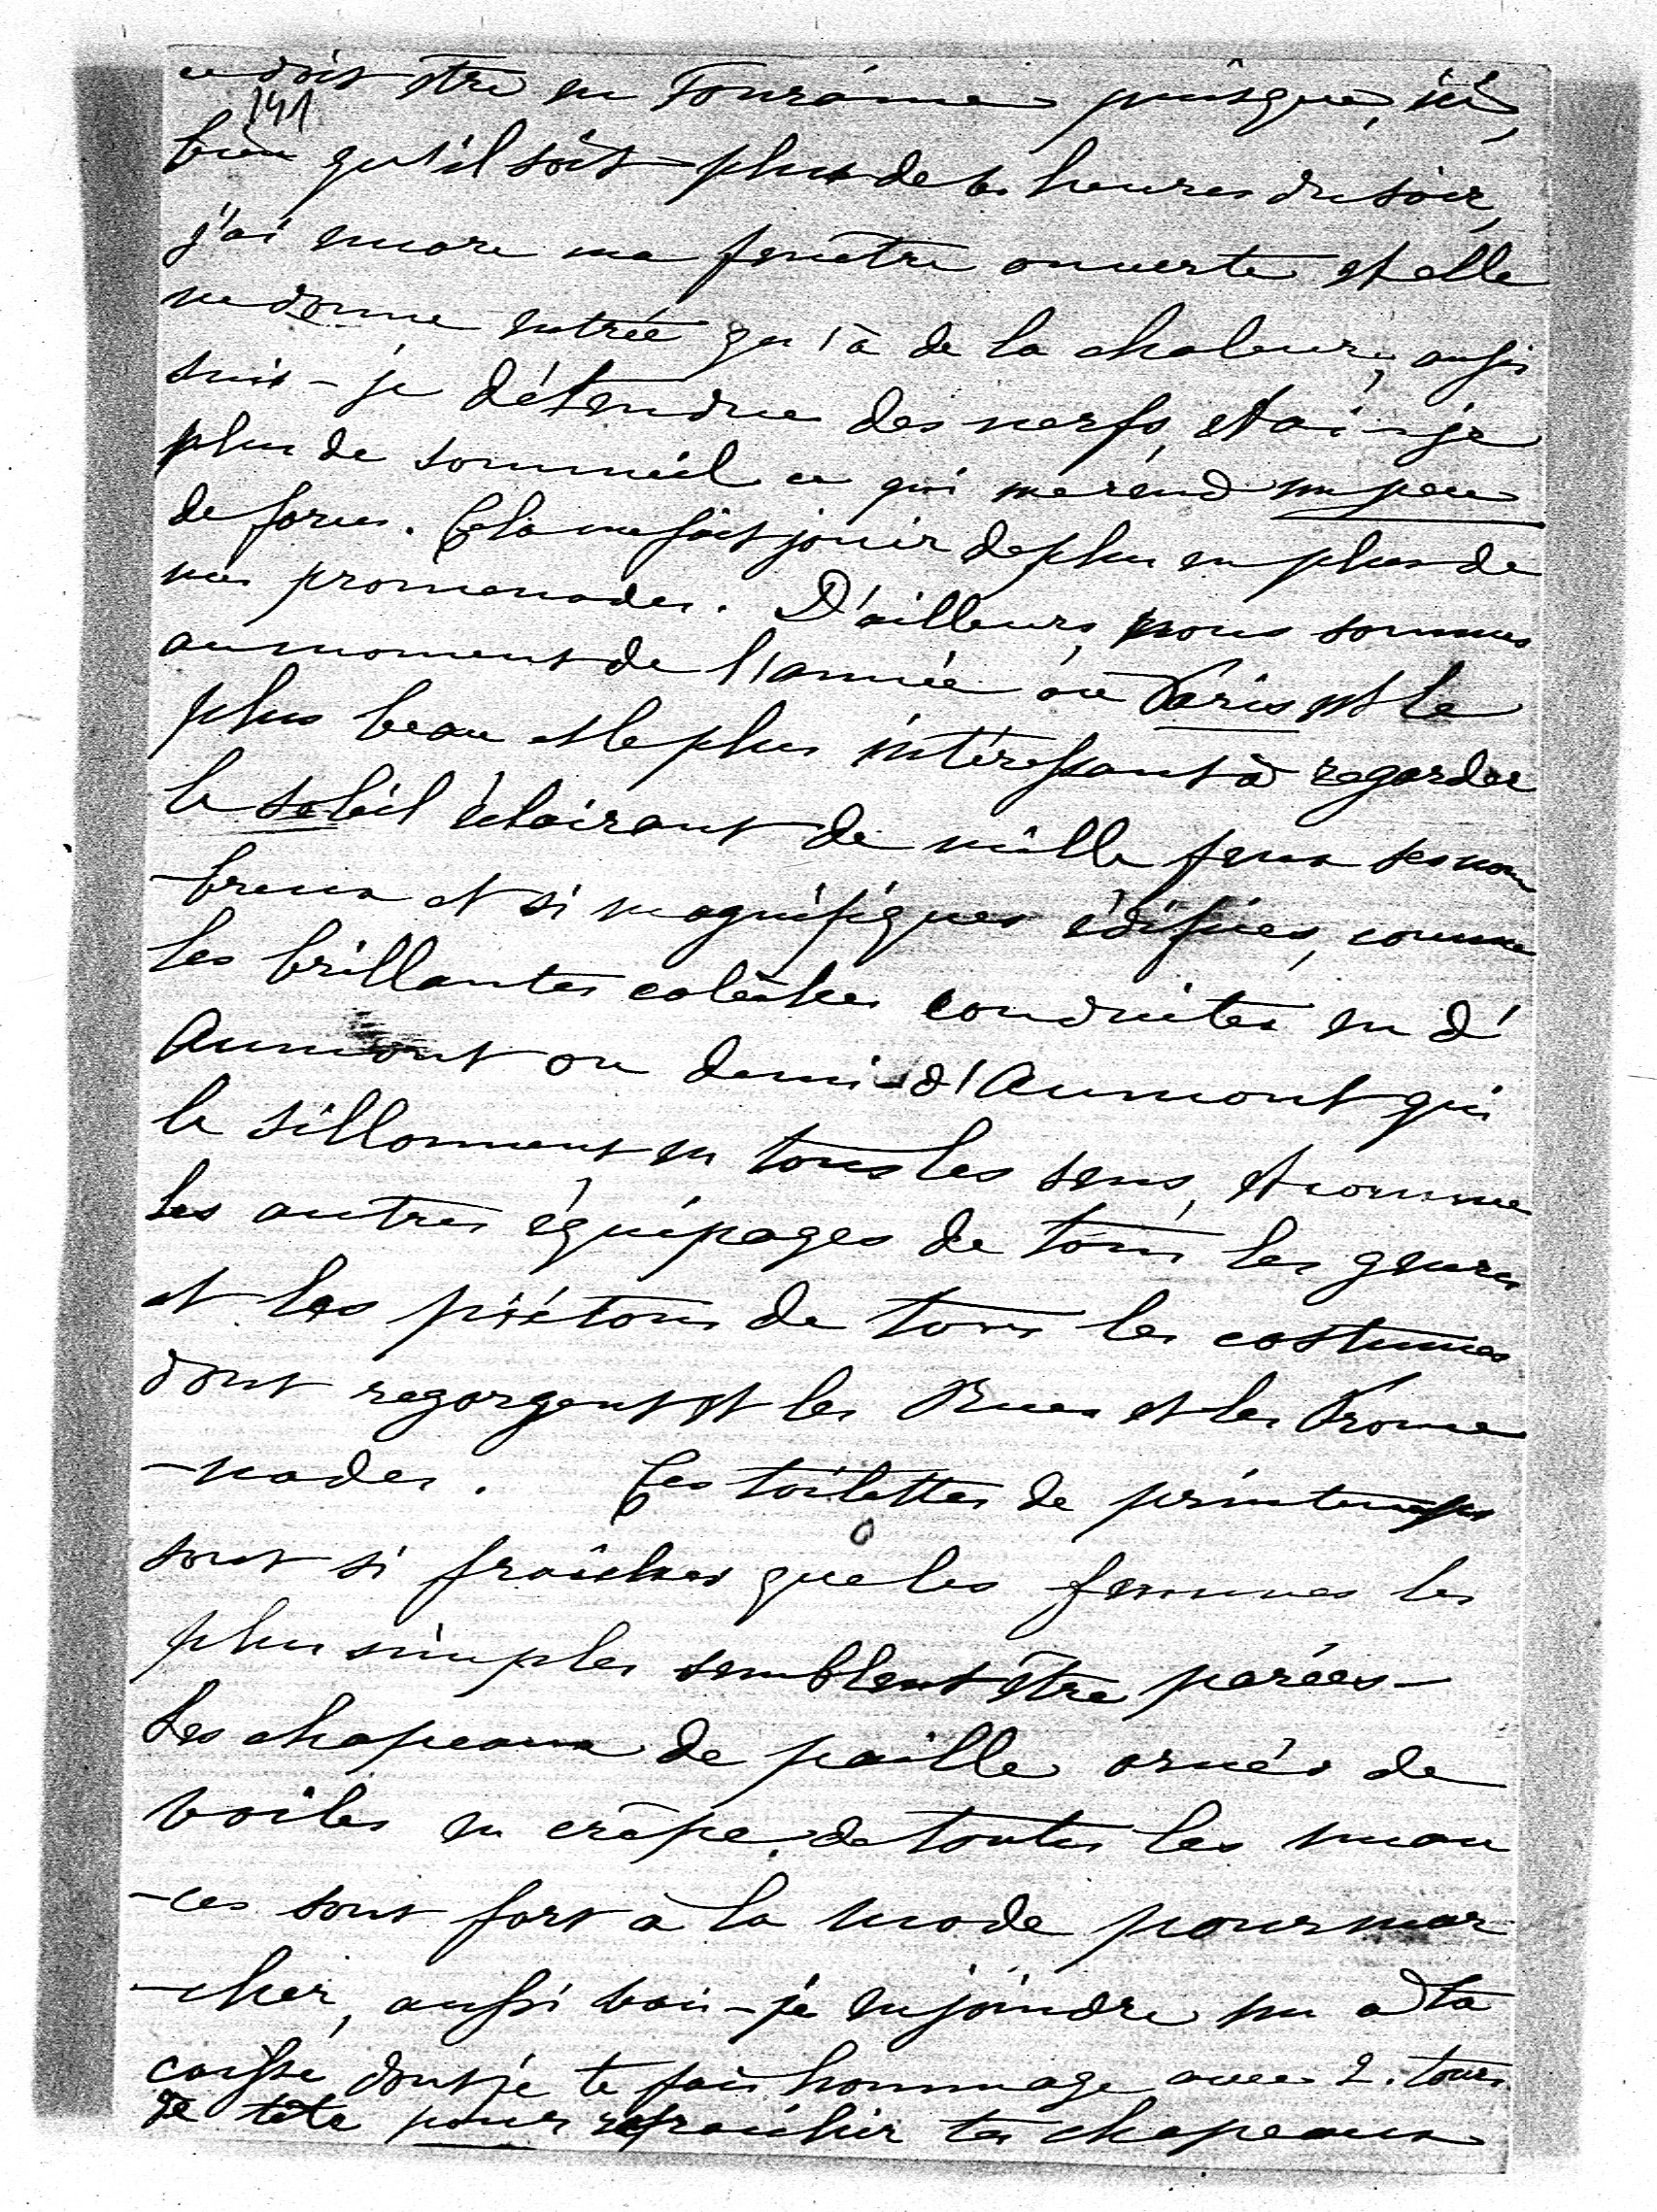 ce doit être en Touraine puisque, ici,
141
bien qu'il soit plus de heures du soir,
j'ai encore ma fenêtre ouverte et elle
ne donne entrée qu'à de la chaleur; aussi
suis-je détendue des nerfs, et ai-je
plus de sommeil ce qui me rend un peu
de forces. Cela me fait jouir de plus en plus de
nos promenades. D'ailleurs, nous sommes
au moment de l'année où Paris est le
plus beau et le plus intéressant à regarder
le soleil éclairant de mille feux ses nom
-breux et si magnifiques édifices, comme
les brillantes calèches conduites en d'
Aumont ou demi-d'Aumont qui
le sillonnent en tous les sens, et comme
les autres équipages de tous les genres
et les piétons de tous les costumes
dont regorgent et les Rues et les Prome
-nades. Les toilettes de printemps
sont si fraîches que les femmes les
plus simples semblent être parées-
Les chapeaux de paille ornés de
voiles en crêpe de toutes les nuan
-ces sont fort à la mode pour mar
-cher, aussi vais-je en joindre un à ta
caisse dont je te fais hommage avec 2 tours
de tête pour rafraîchir tes chapeaux